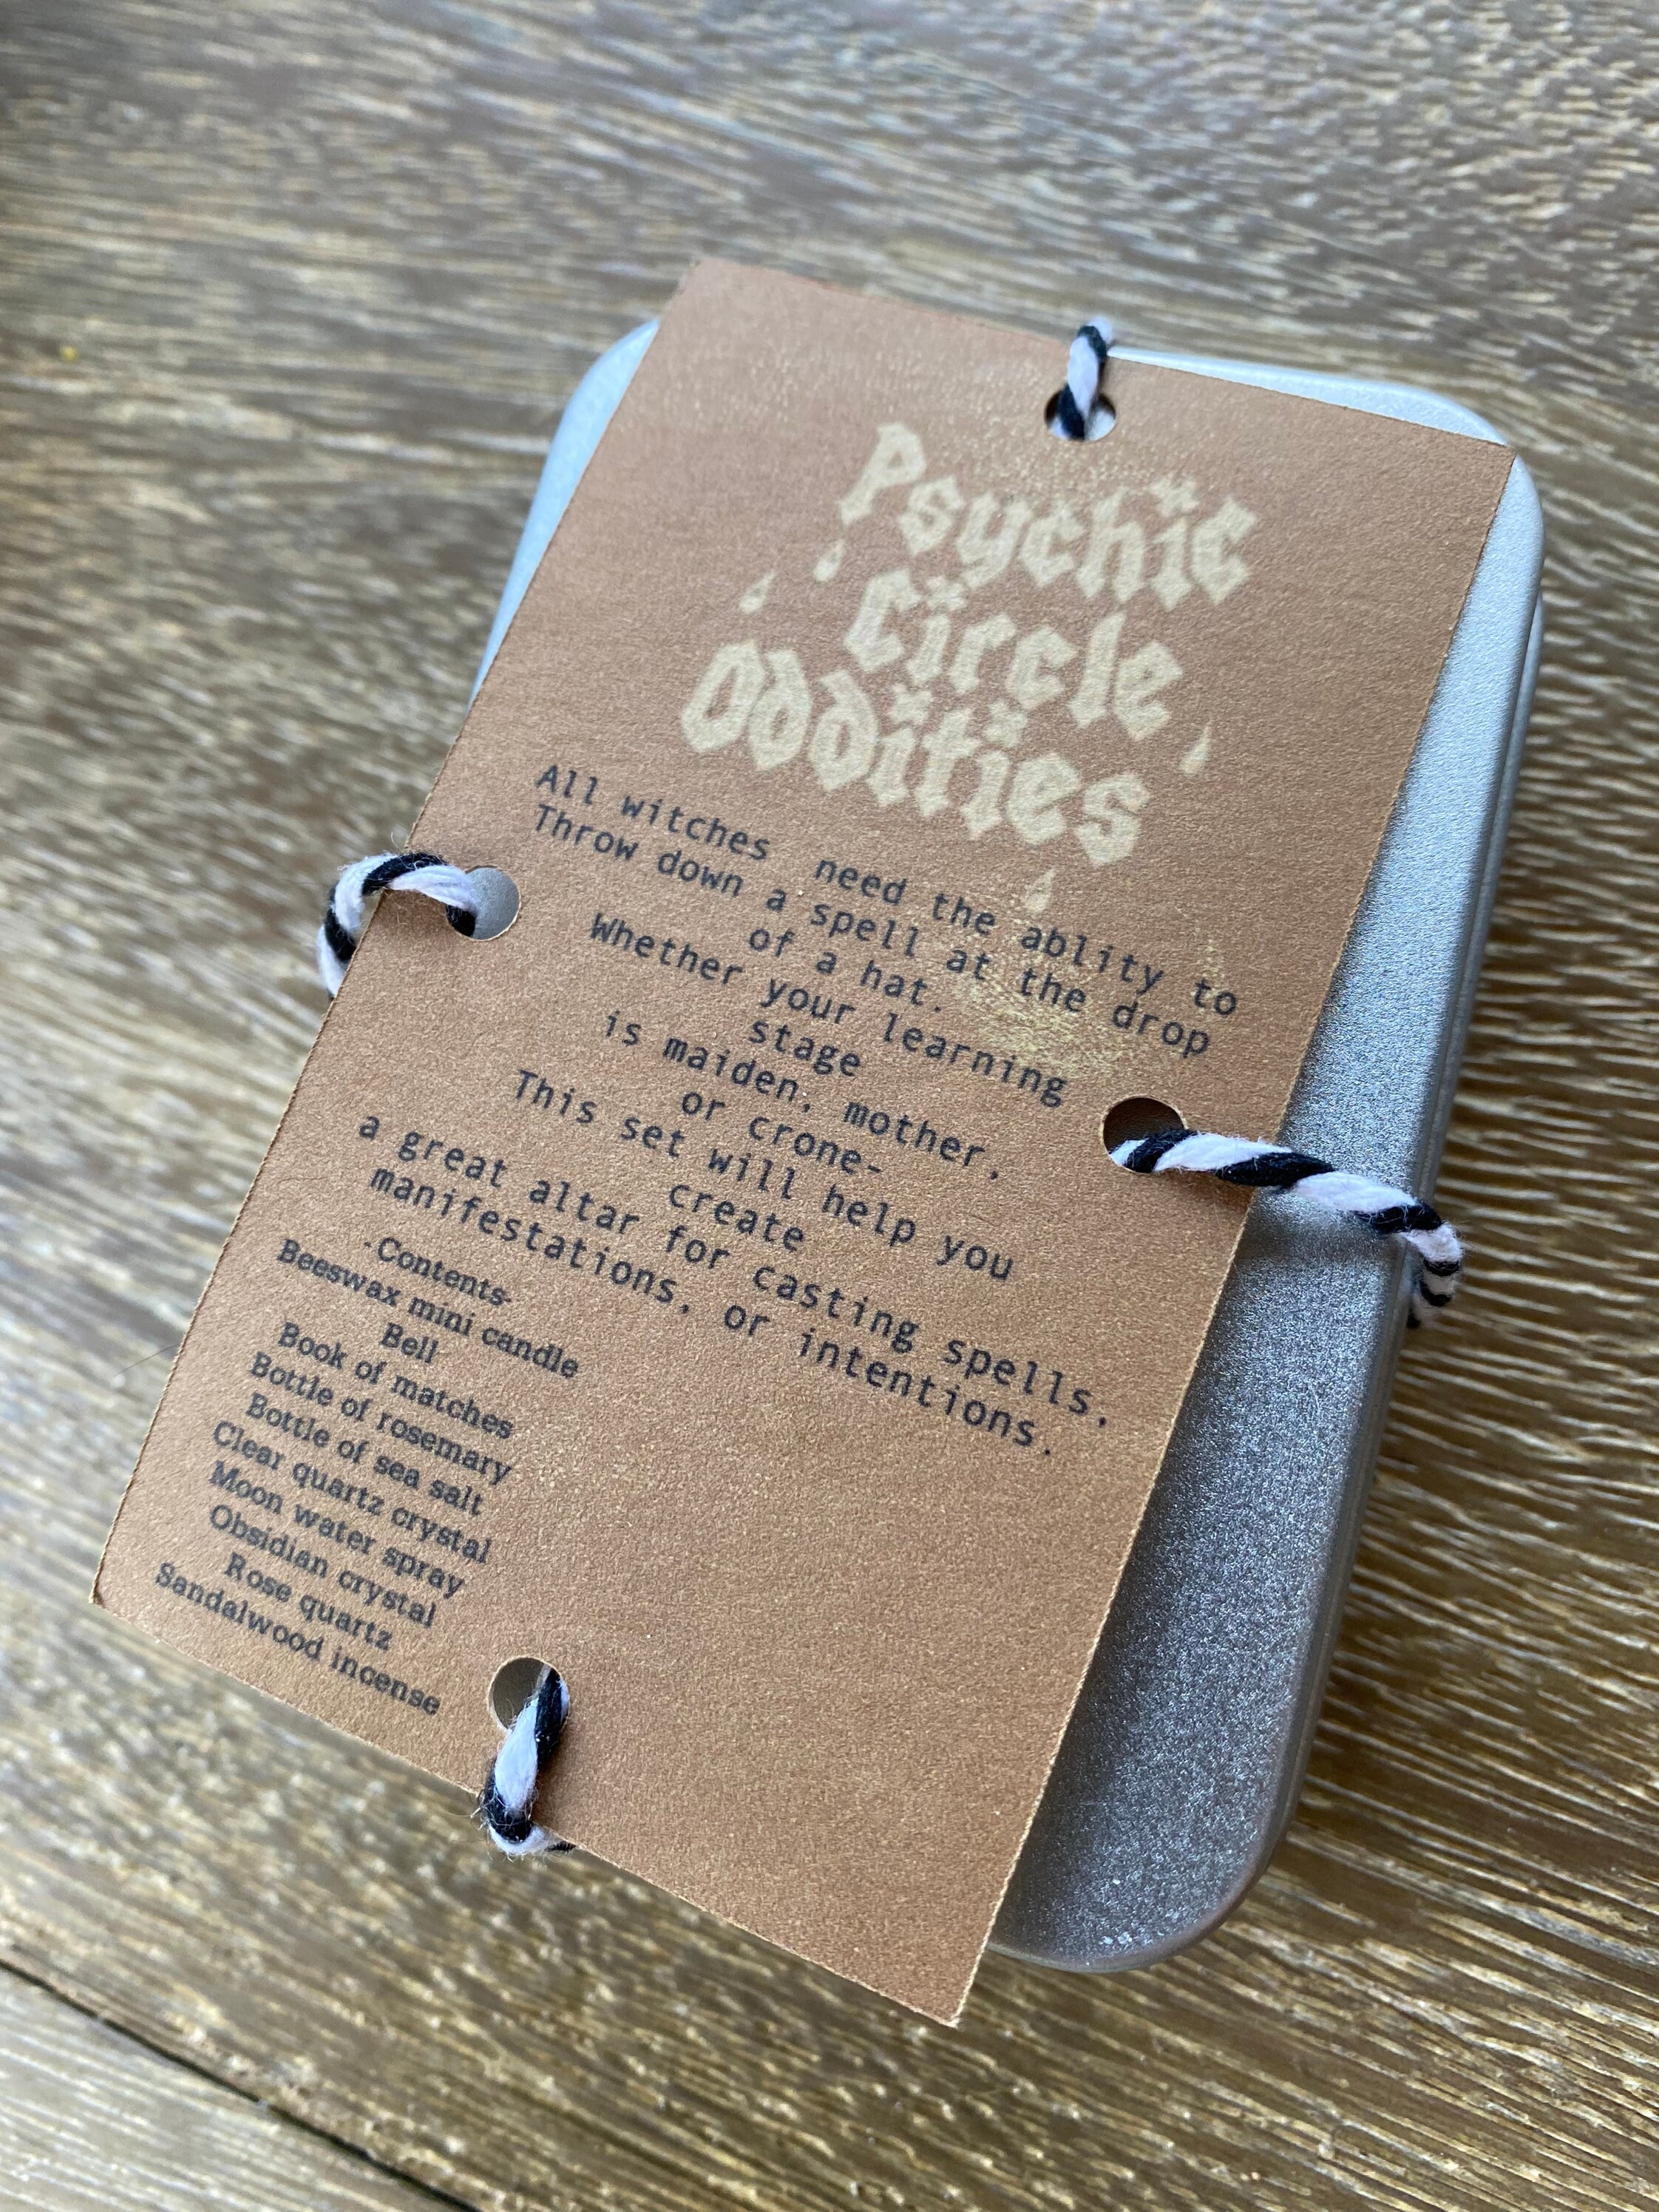 Psychic
Circle
Oddities
All witches need the ablity to
Throw down a spell at the drop
of a hat.
Whether your learning
stage
is maiden, mother,
or crone-
This set will help you
create
a great altar for casting spells,
manifestations, or intentions.
-Contents-
Beeswax mini candle
Bell
Book of matches
Bottle of rosemary
Bottle of sea salt
Clear quartz crystal
Moon water spray
Obsidian crystal
Rose quartz
Sandalwood incense